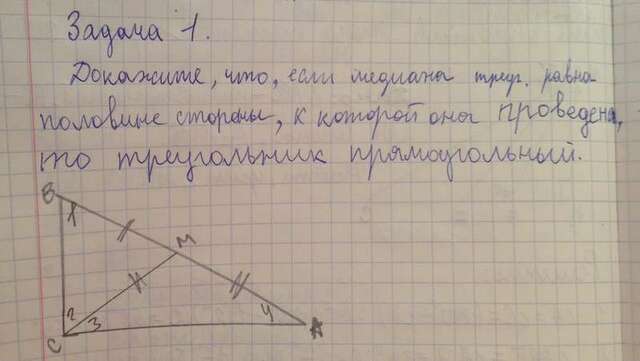 Задача 1.
Докажите, что, если медиана треуг. равна
половине стороны, к которой она проведена,
то треугольник прямоугольный.
В
1
М
2
3
4
А
С